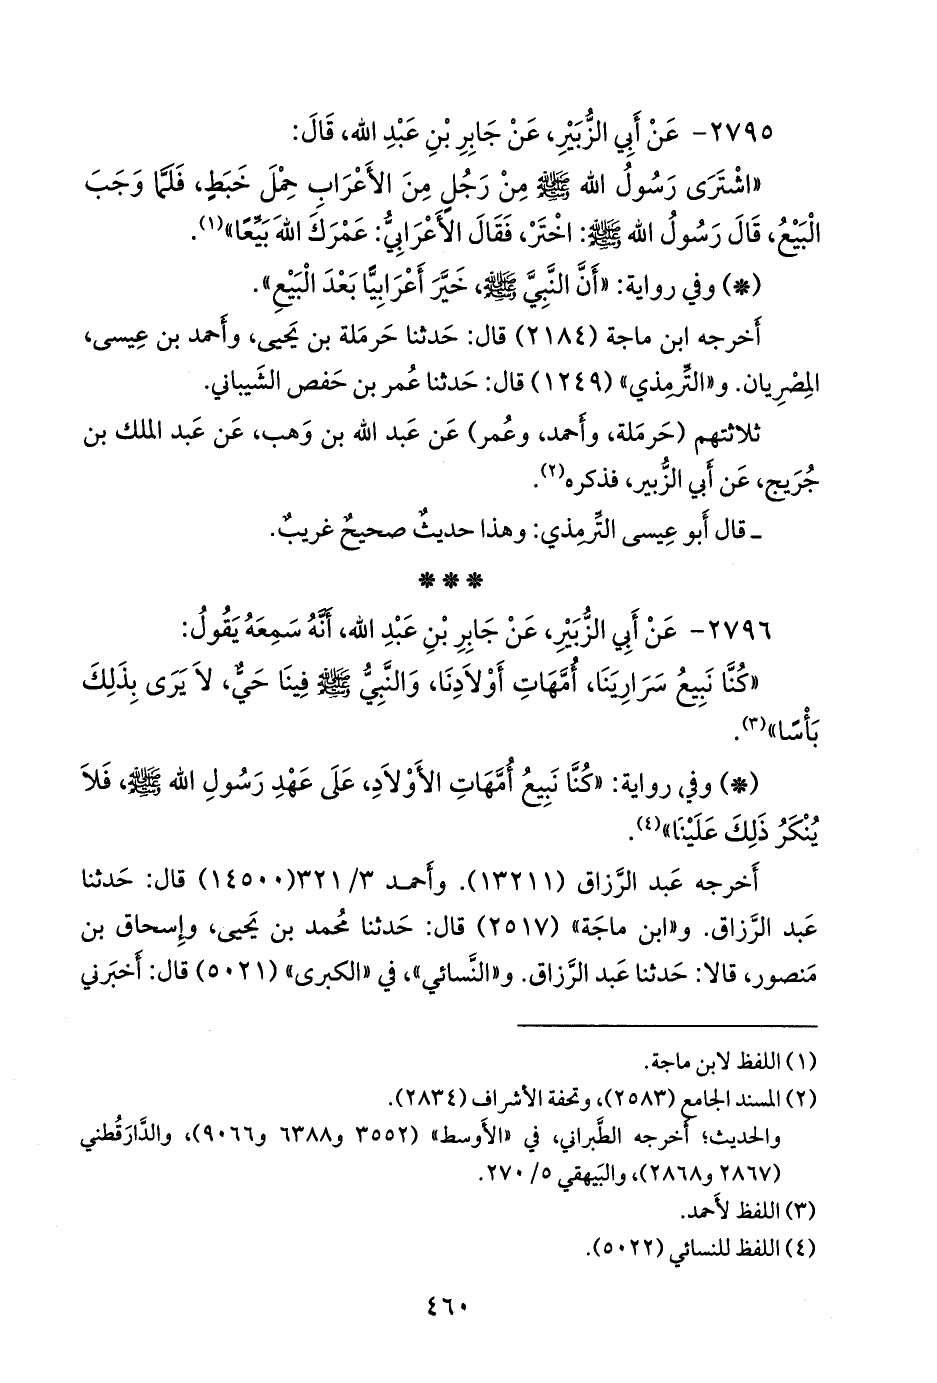 ٢٧٩٥- عَنْ أَبِي الزُّبَيْرِ، عَنْ جَابِرِ بْنِ عَبْدِ الله، قَالَ:
«اشْتَرَى رَسُولُ الله ﷺ مِنْ رَجُلٍ مِنَ الأَعْرَابِ حِمْلَ خَبَطٍ، فَلَمَّا وَجَبَ
الْبَيْعُ، قَالَ رَسُولُ الله ﷺ: اخْتَرْ، فَقَالَ الأَعْرَابِيُّ: عَمْرَكَ اللهَ بَيِّعًا»(١).
(*) وفي رواية: «أَنَّ النَّبِيَّ ﷺ، خَيَّرَ أَعْرَابِيًّا بَعْدَ الْبَيْعِ».
أَخرجه ابن ماجة (٢١٨٤) قال: حَدثنا حَرمَلة بن يَحيى، وأَحمد بن عِيسى،
المِصْرِيان. و«التِّرمِذي» (١٢٤٩) قال: حَدثنا عُمر بن حَفص الشَيباني.
ثلاثتهم (حَرمَلة، وأَحمد، وعُمر) عَن عَبد الله بن وَهب، عَن عَبد الملك بن
جُرَيج، عَن أَبي الزُّبير، فذكره(٢).
ـ قال أَبو عِيسى التِّرمِذي: وهذا حديثٌ صحيحٌ غريبٌ.
***
٢٧٩٦- عَنْ أَبِي الزُّبَيْرِ، عَنْ جَابِرِ بْنِ عَبْدِ الله، أَنَّهُ سَمِعَهُ يَقُولُ:
«كُنَّا نَبِيعُ سَرَارِيَنَا، أُمَّهَاتِ أَوْلاَدِنَا، وَالنَّبِيُّ ﷺ فِينَا حَيٌّ، لاَ يَرَى بِذَلِكَ
بَأْسًا»(٣).
(*) وفي رواية: «كُنَّا نَبِيعُ أُمَّهَاتِ الأَوْلاَدِ، عَلَى عَهْدِ رَسُولِ الله ﷺ، فَلاَ
يُنْكَرُ ذَلِكَ عَلَيْنَا»(٤).
أَخرجه عَبد الرَّزاق (١٣٢١١). وأَحمد ٣/ ٣٢١(١٤٥٠٠) قال: حَدثنا
عَبد الرَّزاق. و«ابن ماجَة» (٢٥١٧) قال: حَدثنا مُحمد بن يَحيى، وإِسحاق بن
مَنصور، قالا: حَدثنا عَبد الرَّزاق. و«النَّسائي»، في «الكبرى» (٥٠٢١) قال: أَخبَرني
(١) اللفظ لابن ماجة.
(٢) المسند الجامع (٢٥٨٣)، وتحفة الأشراف (٢٨٣٤).
والحديث؛ أخرجه الطَّبراني، في «الأوسط» (٣٥٥٢ و٦٣٨٨ و٩٠٦٦)، والدَّارَقُطني
(٢٨٦٧ و٢٨٦٨)، والبَيهقي ٥/ ٢٧٠.
(٣) اللفظ لأَحمد.
(٤) اللفظ للنسائي (٥٠٢٢).
٤٦٠